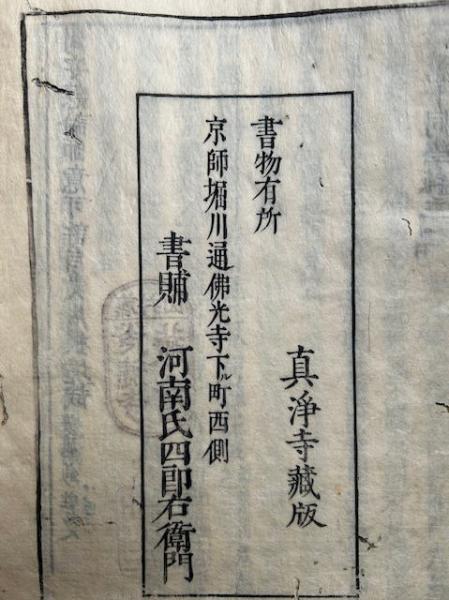 真浄寺藏版
書物有所
京師堀川通佛光寺下ル町西側
書賻 河南氏四郎右衞門